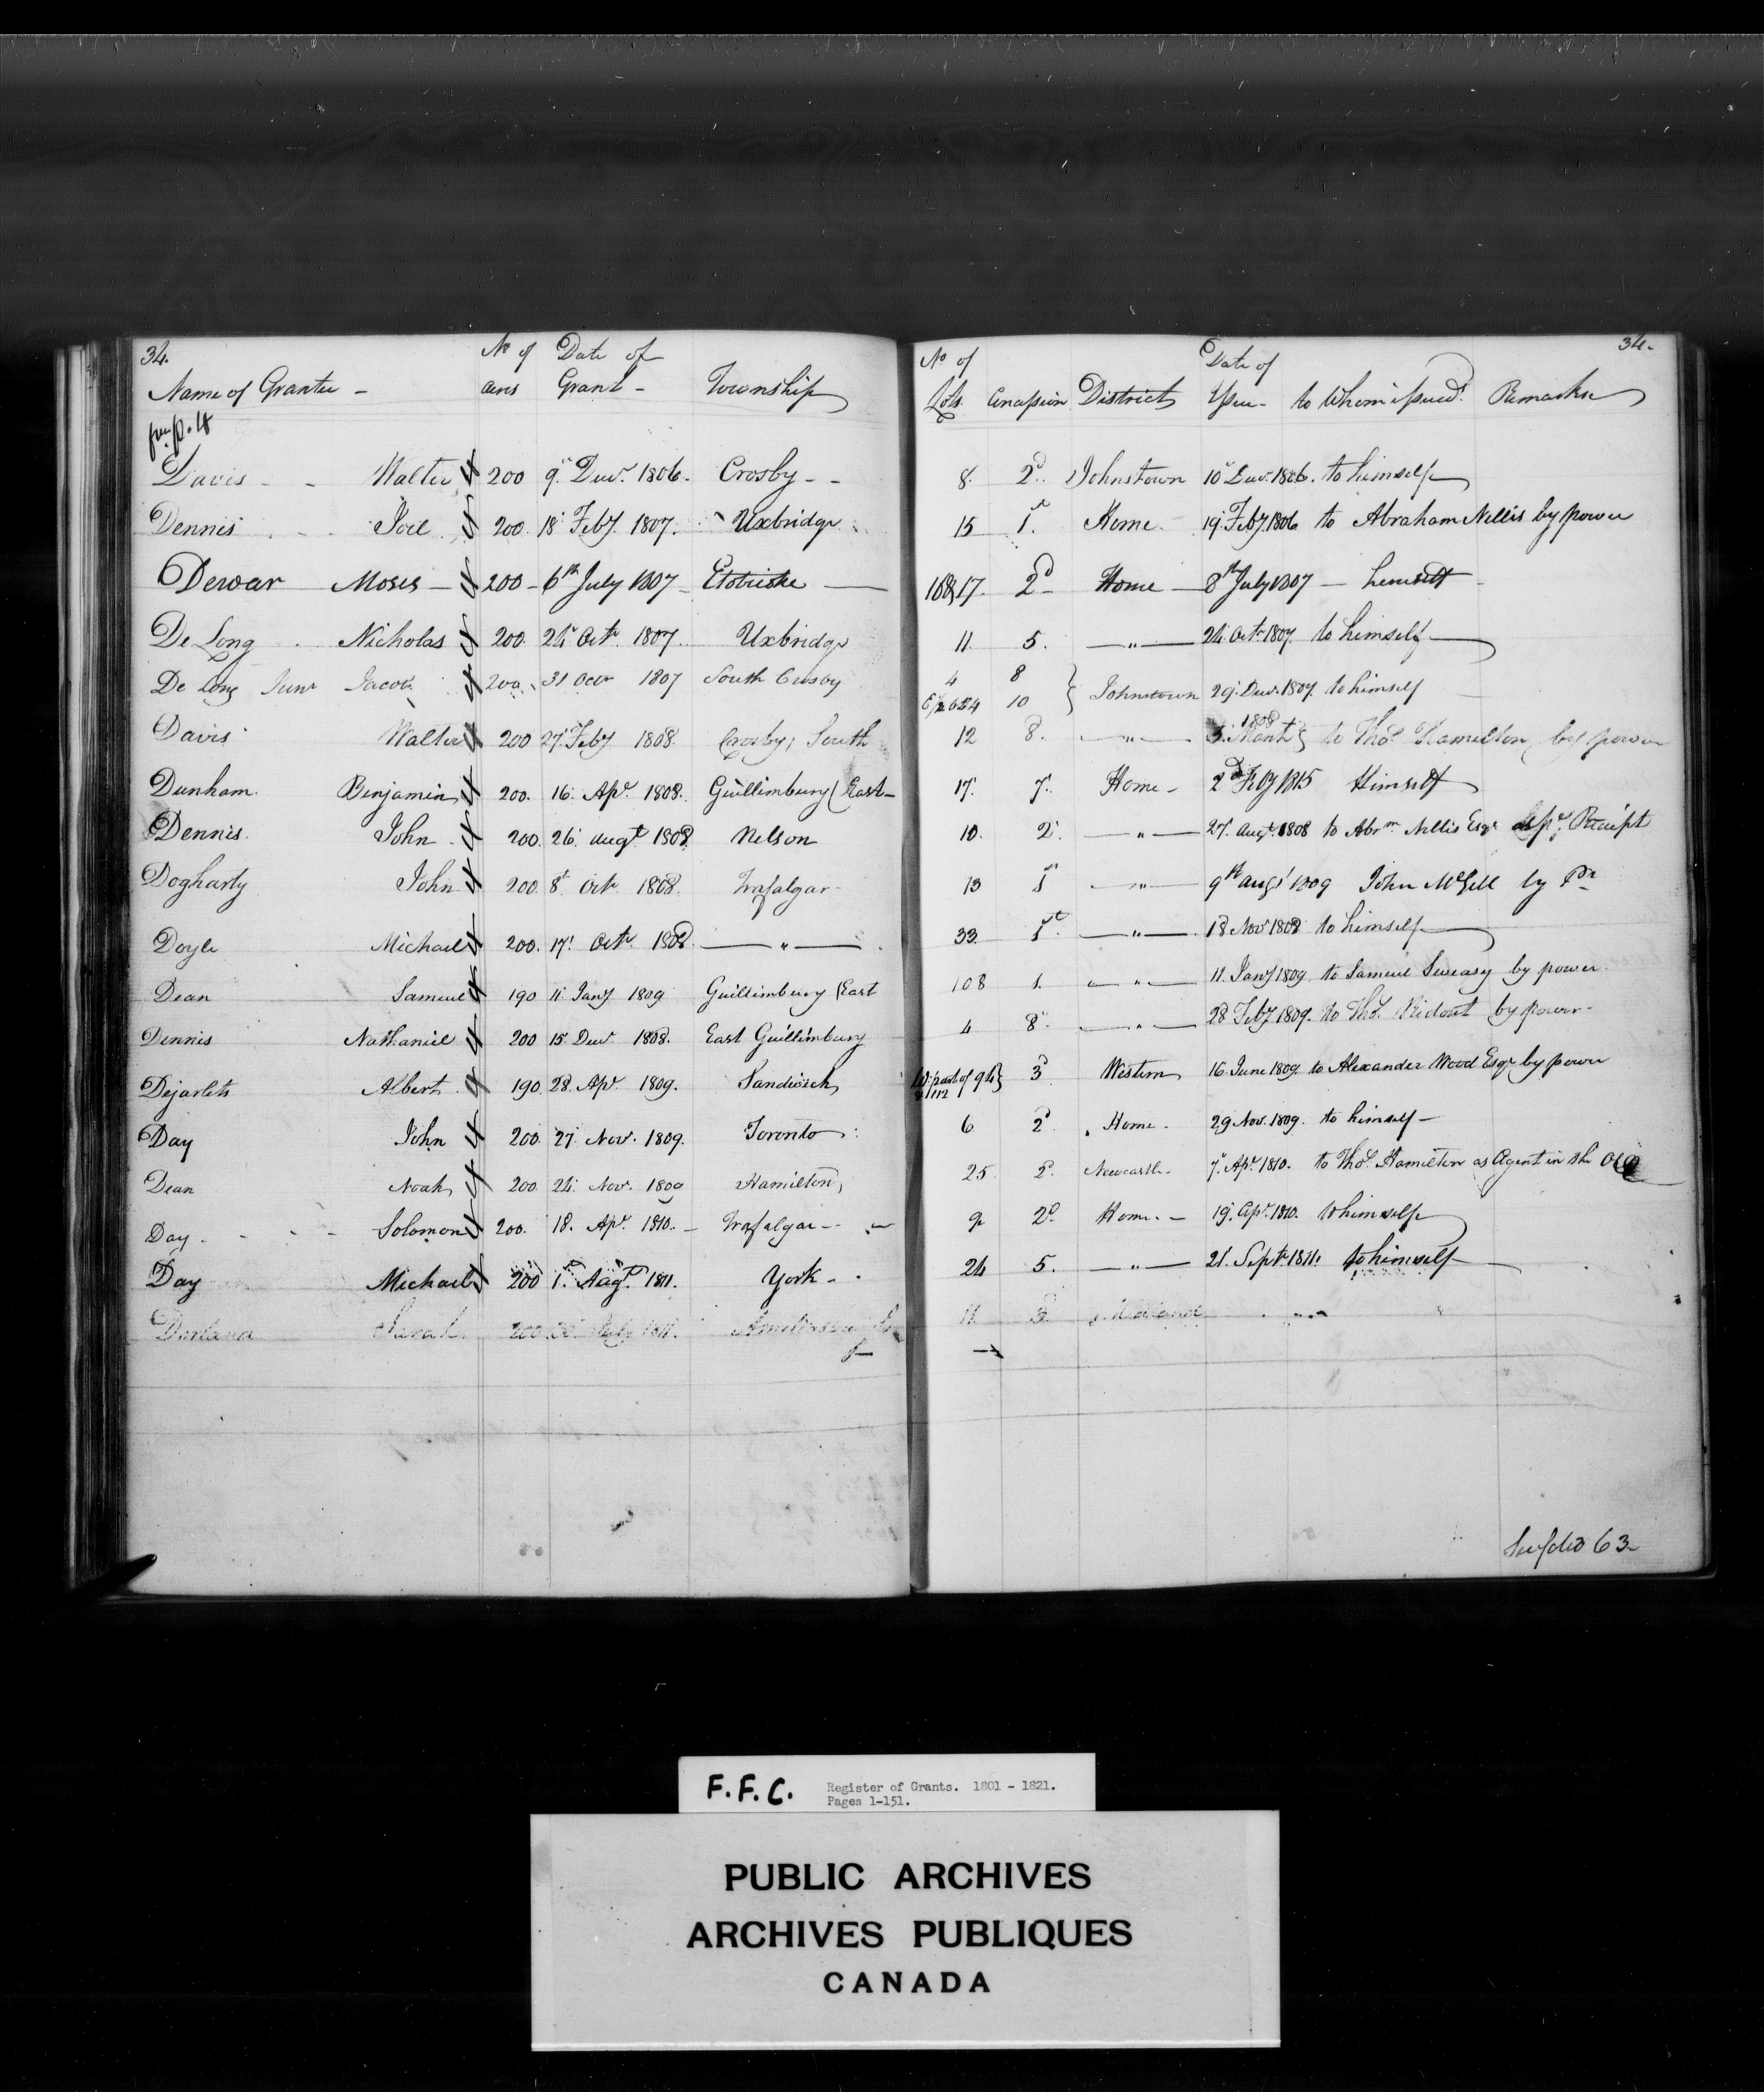 34. No of Date of
Name of Grantee - acres Grant - Township
from p. 4
Davis - - Walter 200 9th Decr. 1806. Crosby - -
Dennis Joel 200 18 Feby. 1807. Uxbridge
Dewar Moses - 200 - 6th July 1807 - Etobicoke
De Long Nicholas 200 24 Octr. 1807. Uxbridge
De Long Junr Jacob 200 31 Octr 1807 South Crosby
Davis Walter 200 27 Feby 1808. Crosby, South
Dunham. Benjamin 200. 16. Apr. 1808. Guillimbury (East -
Dennis. John 200. 26. Augt 1808. Nelson
Dogharty John 200. 8t Octr 1808. Trafalgar -
Doyle Michael 200. 17. Octr. 1808 — " —
Dean Samuel 190 11 Jany 1809 Guillimbury (East
Dennis Nathaniel 200 15 Decr 1808. East Guillimbury
Dejarlets Albert 190 28. Apr. 1809. Sandwich
Day John 200. 27. Nov. 1809. Toronto
Dean Noah 200 24. Nov. 1809 Hamilton
Day. Solomon 200. 18. Apr. 1810. - Trafalgar -
Day Michael 200 1st Augt. 1811. York -
Dorland Sarah 200 July 1811.
No of Date of 34.
Lots Concession District Issue - to Whom issued. Remarks
8. 2d. Johnstown 10 Decr. 1806. to himself
15 1st. Home. 19. Feby. 1806 to Abraham Nellis by power
16 & 17. 2d - Home - 8th July 1807 - himself
11. 5. — " — 24 Octr. 1807. to himself
4 8
10 } Johnstown 29. Decr. 1807. to himself
12 8. — " — 3. March 1808 } to Thos. Hamilton by power
17. 7. Home - 2d Feby 1815 Himself
10. 2. — " — 27. Augt. 1808 to Abrm Nellis Esqr pr. Receipt
13 1st — " — 9th Augt 1809 John McGill by Pr
33. 1st. — " — 18 Novr 1808 to himself
108 1. — " — 11. Jany 1809. to Samuel Sweasy by power.
4 8 — " — 28 Feby 1809. to Thos. Ridout by power -
W. part of 94 } 3d Western 16 June 1809 to Alexander Wood Esqr by power
& 112
6 2d. Home. 29 Nov. 1809. to himself -
25. 2d. Newcastle - 7. Apr. 1810. to Thos. Hamilton as Agent in the
9 2d. Home. - 19. Apr. 1810. to himself
24 5. — " — 21. Septr 1811. to himself
11. 3. Midland " "
See folio 63
F.F.C. Register of Grants. 1801 - 1821.
Pages 1-151.
PUBLIC ARCHIVES
ARCHIVES PUBLIQUES
CANADA